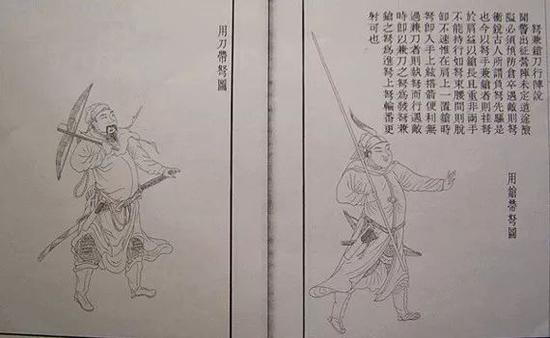 弩兼鎗刀行陣說
聞警出征營陣未定道途險
隘必須預防倉卒遇敵則弩
衝銳古人所謂負弩先驅是
也今以弩手兼鎗者則挂弩
於肩益以鎗長且重非兩手
不能持行如弩束腰間則脫
卸不速惟在肩上一置鎗時
弩卽入手上絃搭箭便利無
過兼刀者則執弩而行遇敵
時卽以兼刀之弩爲發弩兼
鎗之弩爲進弩上弩輪番更
射可也
用鎗帶弩圖
用刀帶弩圖